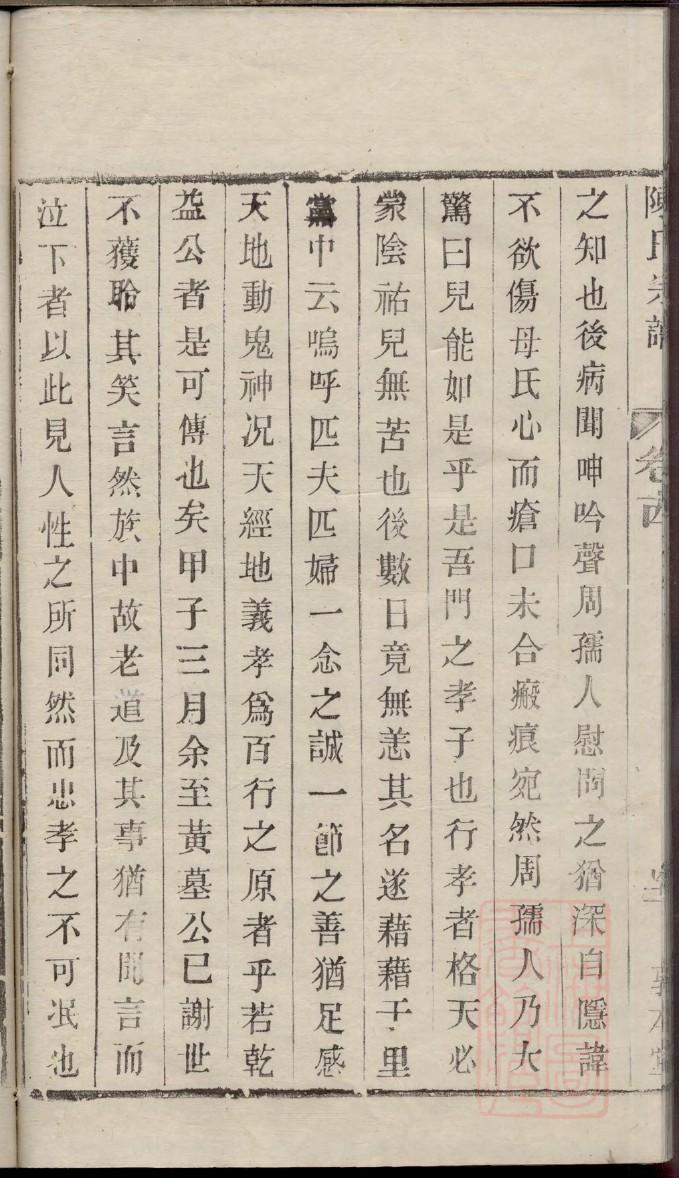 陳氏宗譜 卷西
之知也後病聞呻吟聲周孺人慰問之猶深自隱諱
不欲傷母氏心而瘡口未合瘢痕宛然周孺人乃大
驚曰兒能如是乎是吾門之孝子也行孝者格天必
蒙陰祐兒無苦也後數日竟無恙其名遂藉藉于里
黨中云嗚呼匹夫匹婦一念之誠一節之善猶足感
天地動鬼神况天經地義孝爲百行之原者乎若乾
益公者是可傳也矣甲子三月余至黃墓公已謝世
不獲聆其笑言然族中故老道及其事猶有聞言而
泣下者以此見人性之所同然而忠孝之不可泯也